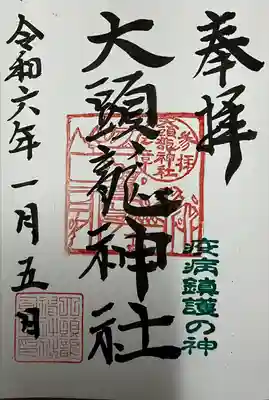 奉拝
大頭龍神社
参拝
大頭龍神社
疫病鎮護の神
令和六年一月五日